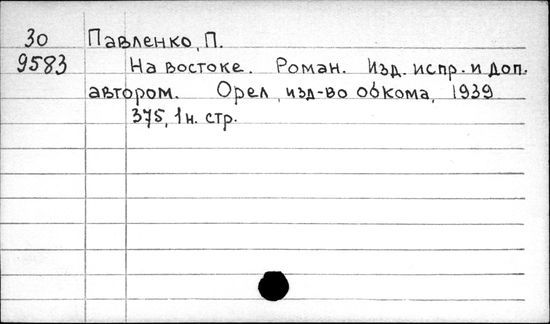 30 Павленко, П.
9583 На востоке. Роман. Изд. испр. и доп.
автором. Орел, изд-во обкома, 1939
375, 1 н. стр.